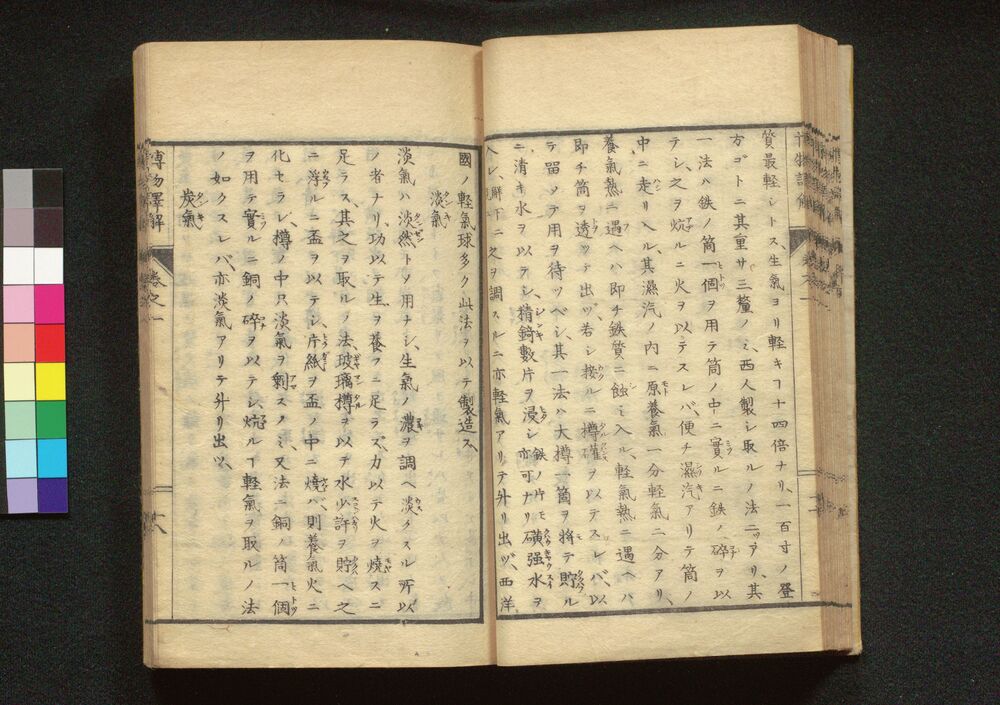 質最軽シトス生氣ヨリ軽キヿ十四倍ナリ、一百寸ノ登
方ゴトニ其重サ三釐ノミ、西人製シ取ルノ法二ツアリ、其
一法ハ鉄ノ筒一個ヲ用テ筒ノ中ニ實ルニ鉄ノ碎ヲ以
テシ、之ヲ焼ルニ火ヲ以テスレバ、便チ濕汽アリテ筒ノ
中ニ走リヘル、其濕汽ノ内ニ原養氣一分軽氣二分アリ、
養氣熱ニ遇ヘハ即チ鉄質ニ蝕ミ入ル、軽氣熱ニ遇ヘハ
即チ筒ヲ透ツテ出ヅ、若シ接ルニ樽罐ヲ以テスレバ、以
テ留ソテ用ヲ待ツベシ、其一法ハ大樽一箇ヲ将テ貯ル
ニ清キ水ヲ以テシ、精錡數片ヲ浸シ鉄ノ片モ亦可ナリ磺强水ヲ
入レ、觧下ニ之ヲ調スルニ亦軽氣アリテ外リ出ヅ、西洋
國ノ軽氣球多ク此法ヲ以テ製造ス、
淡氣
淡氣ハ淡然トソ用ナシ、生氣ノ濃ヲ調ヘ淡クスル所以
ノ者ナリ、功以テ生ヲ養フニ足ラズ、力以テ火ヲ燒スニ
足ラス、其之ヲ取ルノ法、玻璃樽ヲ以テ水少許ヲ貯ヘ之
ニ浮ルニ盃ヲ以テシ、片紙ヲ盃ノ中ニ燒バ、則養氣火ニ
化セラレ、樽ノ中只淡氣ヲ剰スノミ、又法ニ銅ノ筒一個
ヲ用テ實ルニ銅ノ碎ヲ以テシ、焼ルヿ軽氣ヲ取ルノ法
ノ如クスレバ、亦淡氣アリテ外リ出ツ、
炭氣
博物譯解 巻之一